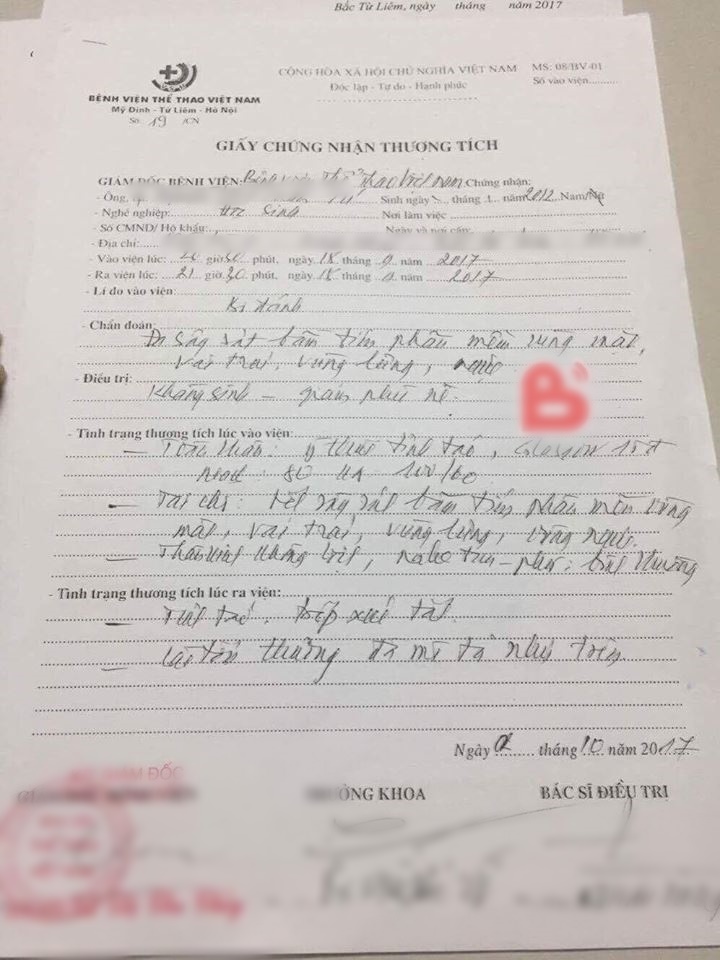 Bắc Từ Liêm, ngày tháng năm 2017
BỆNH VIỆN THỂ THAO VIỆT NAM
Mỹ Đình - Từ Liêm - Hà Nội
Số 19 /CN
CỘNG HÒA XÃ HỘI CHỦ NGHĨA VIỆT NAM
Độc lập - Tự do - Hạnh phúc
MS: 08/BV-01
Số vào viện
GIẤY CHỨNG NHẬN THƯƠNG TÍCH
GIÁM ĐỐC BỆNH VIỆN: Bệnh viện Thể Thao Việt Nam Chứng nhận:
- Ông, Sinh ngày tháng năm 2012 Nam/Nữ
- Nghề nghiệp: Học Sinh Nơi làm việc
- Số CMND/ Hộ khẩu Ngày và nơi cấp
- Địa chỉ:
- Vào viện lúc: giờ 30 phút, ngày 18 tháng 9 năm 2017
- Ra viện lúc: 21 giờ 30 phút, ngày 18 tháng 9 năm 2017
- Lí do vào viện:
Bị đánh
- Chẩn đoán
Đa sây sát bầm tím phần mềm vùng mặt,
vai trái, vùng lưng, ngực
- Điều trị:
Kháng sinh - giảm phù nề.
B
- Tình trạng thương tích lúc vào viện:
- Toàn thân: ý thức tỉnh táo, Glasgow 15đ
80 HA 100/60
- Tại chỗ: vết sây sát bầm tím phần mềm vùng
mặt, vai trái, vùng lưng, vùng ngực.
- Thần kinh không liệt, bình thường
- Tình trạng thương tích lúc ra viện:
- Tỉnh táo, tiếp xúc tốt
- Các tổn thương đã mô tả như trên.
Ngày 2 tháng 10 năm 2017
ĐỐC
KHOA
BÁC SĨ ĐIỀU TRỊ